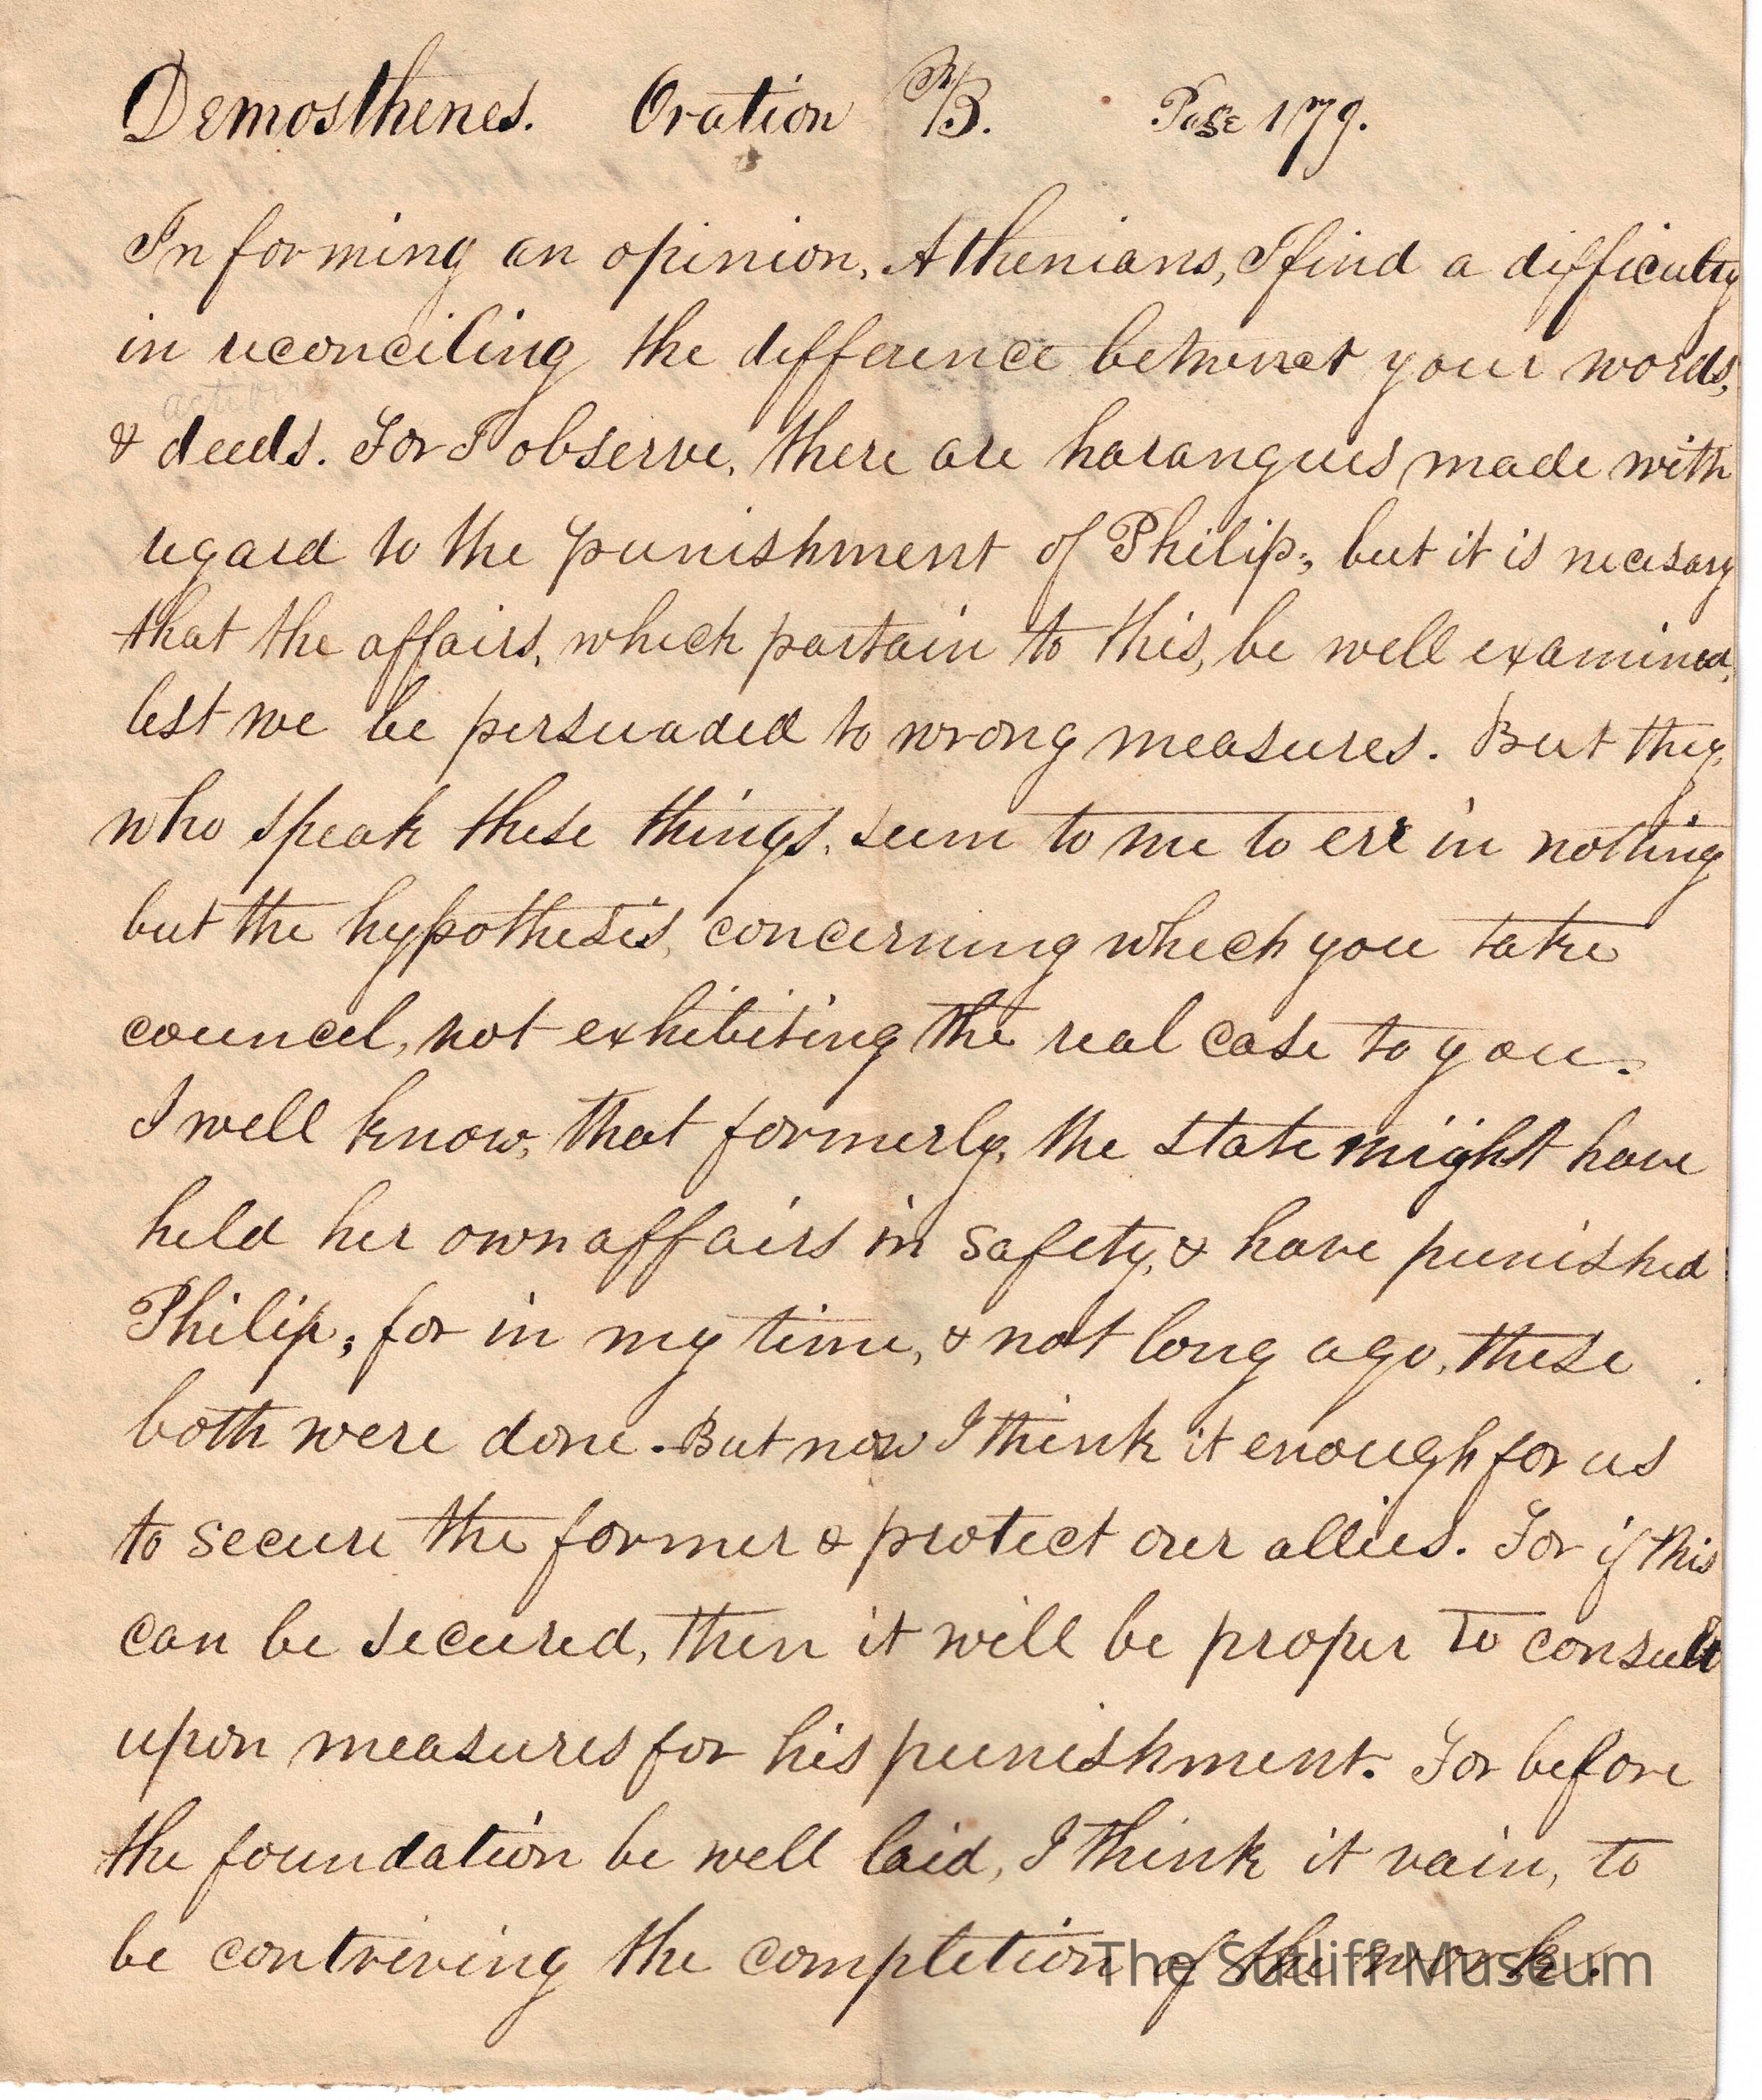 Demosthenes. Oration B. Page 179.
In forming an opinion, Athenians, I find a difficulty
in reconciling the difference betwixt your words,
action
& deeds. For I observe, there are harangues made with
regard to the punishment of Philip; but it is necesary
that the affairs, which partain to this, be well examined,
lest we be persuaded to wrong measures. But they,
who speak these things, seem to me to err in nothing
but the hypothesis, concerning which you take
council, not exhibiting the real case to you.
I well know, that formerly, the state might have
held her own affairs in safety, & have punished
Philip; for in my time, & not long ago, these
both were done. But now I think it enough for us
to secure the former & protect our allies. For if this
can be secured, then it will be proper to consult
upon measures for his punishment. For before
the foundation be well laid, I think it vain, to
be contriving the completion of the work.
The Sutliff Museum